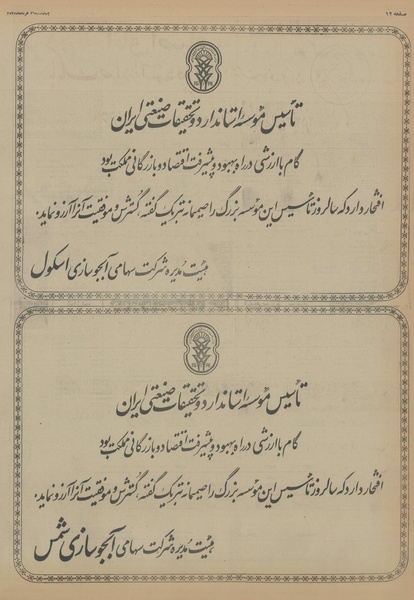 صفحه ۱۲
تأسیس مؤسسه استاندارد و تحقیقات صنعتی ایران
گام با ارزشی در راه بهبود و پیشرفت اقتصاد و بازرگانی مملکت بود
افتخار دارد که سالروز تأسیس این مؤسسه بزرگ را صمیمانه تبریک گفته، گسترش و موفقیت آنرا آرزو نماید.
هیئت مدیره شرکت سهامی آبجوسازی اسکول
تأسیس مؤسسه استاندارد و تحقیقات صنعتی ایران
گام با ارزشی در راه بهبود و پیشرفت اقتصاد و بازرگانی مملکت بود
افتخار دارد که سالروز تأسیس این مؤسسه بزرگ را صمیمانه تبریک گفته، گسترش و موفقیت آنرا آرزو نماید.
هیئت مدیره شرکت سهامی آبجوسازی شمس